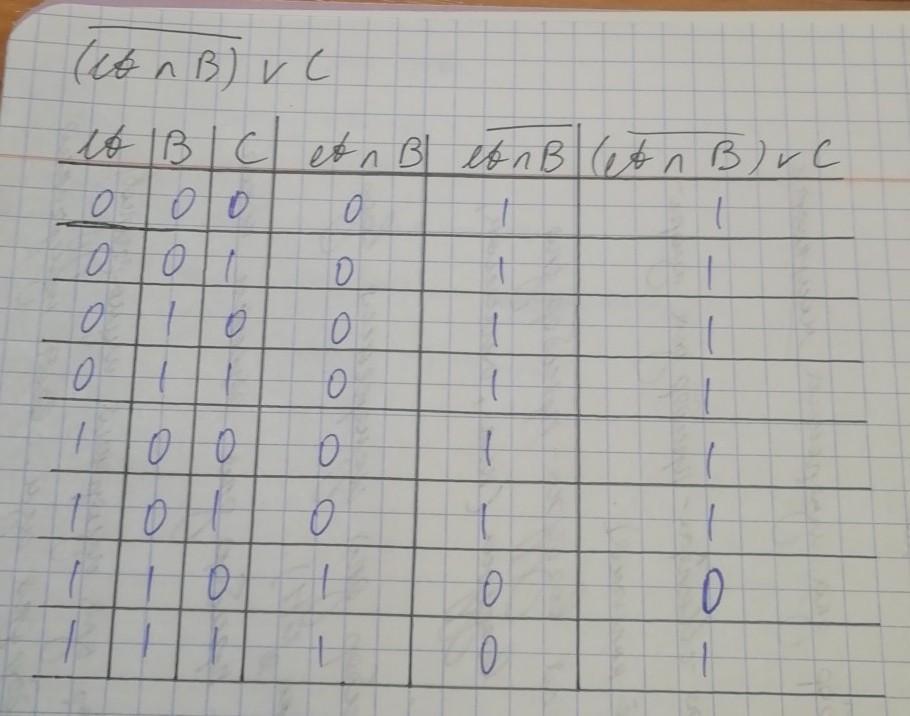 (A ∩ B)̅ v C
A B C A ∩ B A̅ ∩̅ B̅ (A̅ ∩̅ B̅) v C
0 0 0 0 1 1
0 0 1 0 1 1
0 1 0 0 1 1
0 1 1 0 1 1
1 0 0 0 1 1
1 0 1 0 1 1
1 1 0 1 0 0
1 1 1 1 0 1